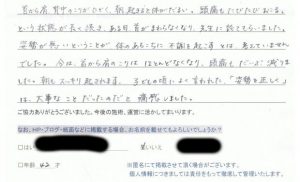 首から肩、背中のこりがひどく、朝起きると体がだるい。頭痛もたびたびおこる。
という状態が長く続き、ある日、首がまわらなくなり、先生に診てもらいました。
姿勢が悪いということが、体のあちこちに不調を起こすとは、考えていません
でした。今は、首から肩のこりはほとんどなくなり、頭痛もだいぶ減りました。
朝もスッキリ起きれます。子どもの頃によく言われた、「姿勢を正しく」
は、大事なことだったのだと痛感しました。
ご協力ありがとうございました。今後の施術、運営に活かしてまいります。
なお、HP・ブログ・紙面などに掲載する場合、お名前を載せてもよろしいでしょうか？
□は
□いいえ
□年齢 42 才
※匿名にて掲載させて頂く場合がございます。
個人情報につきましては責任をもって徹底して管理いたします。